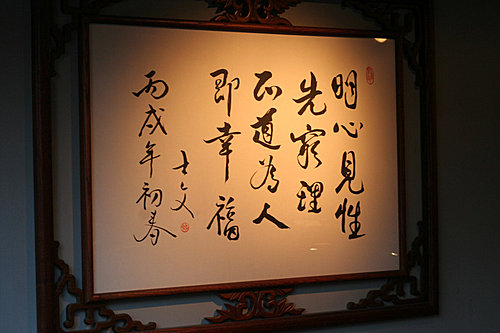 明心見性
先窮理
正道為人
即幸福
丙戌年初春
士文